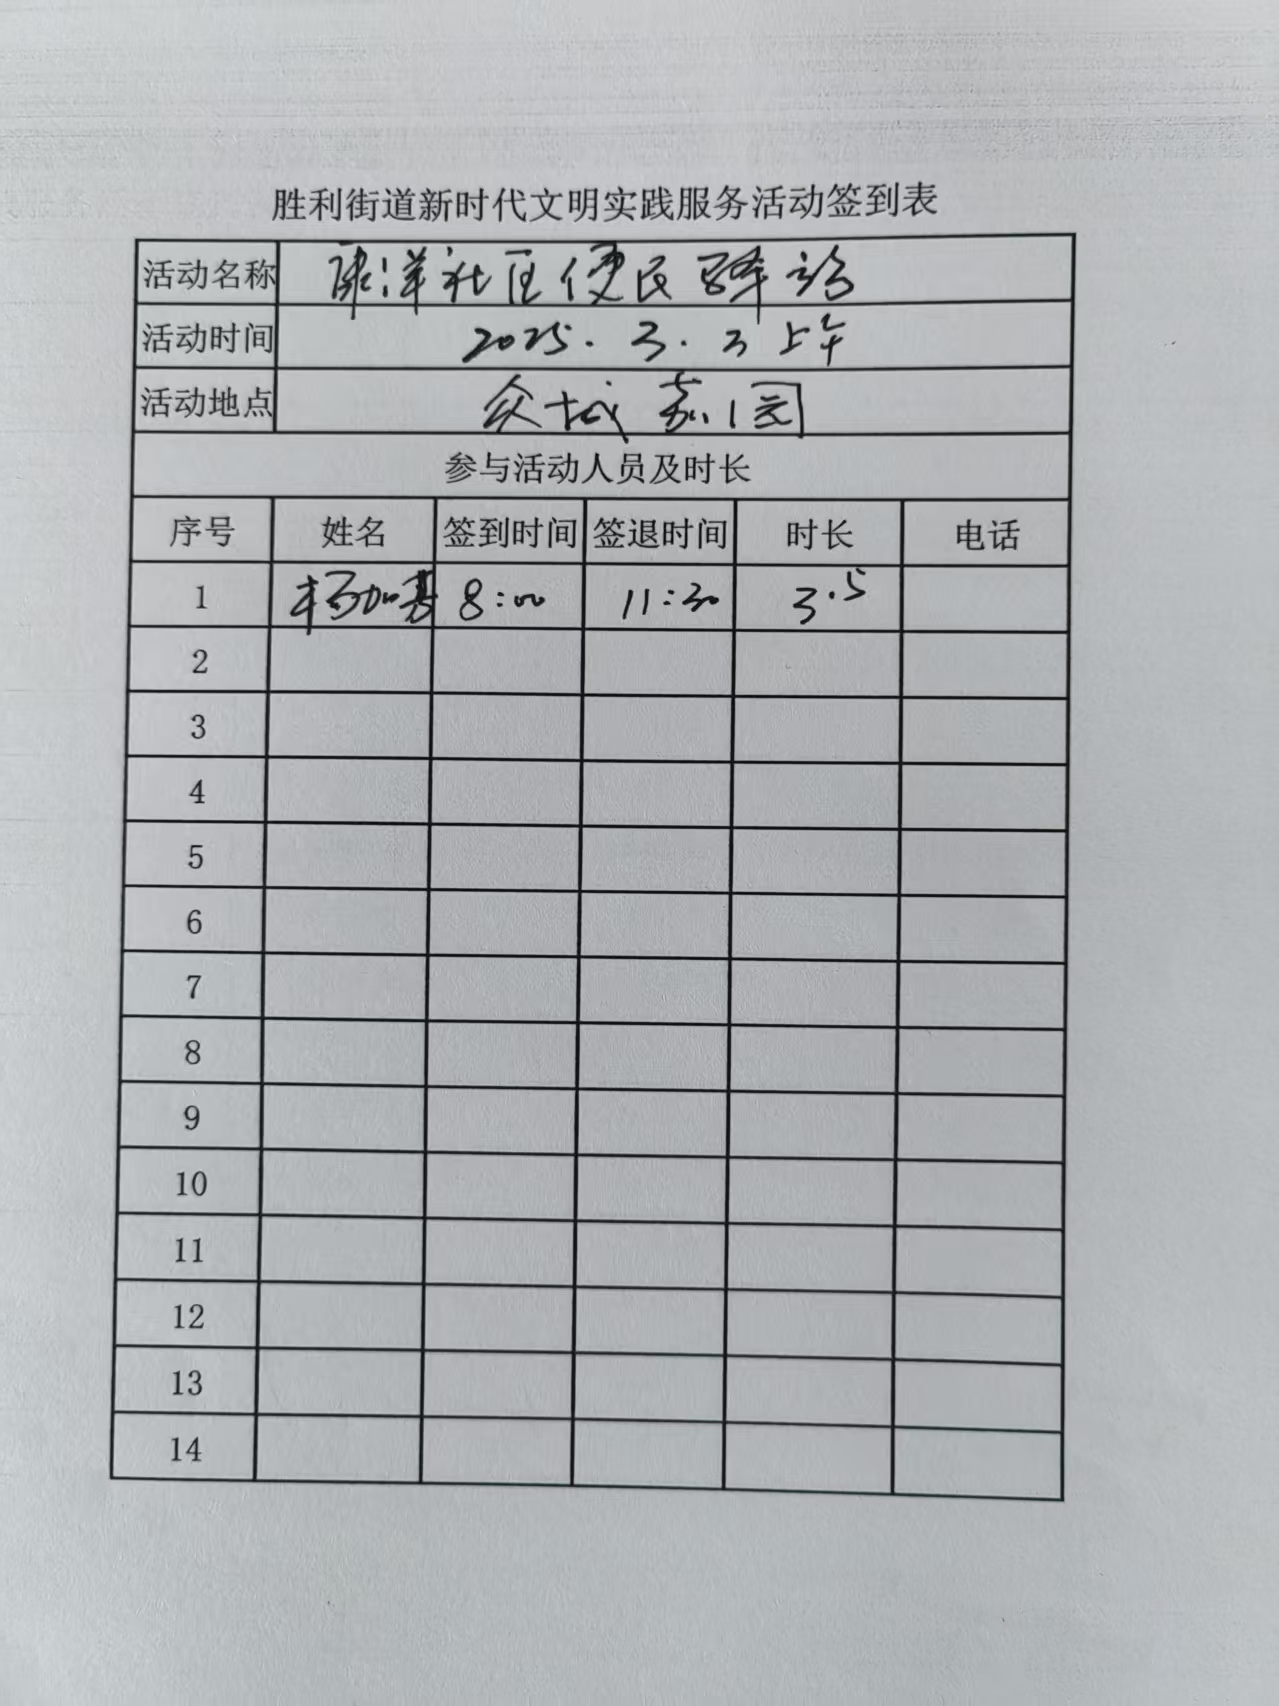 胜利街道新时代文明实践服务活动签到表
活动名称 康洋社区便民驿站
活动时间 2025.3.3上午
活动地点 众城嘉园
参与活动人员及时长
序号 姓名 签到时间 签退时间 时长 电话
1 杨加 8:00 11:30 3.5
2
3
4
5
6
7
8
9
10
11
12
13
14